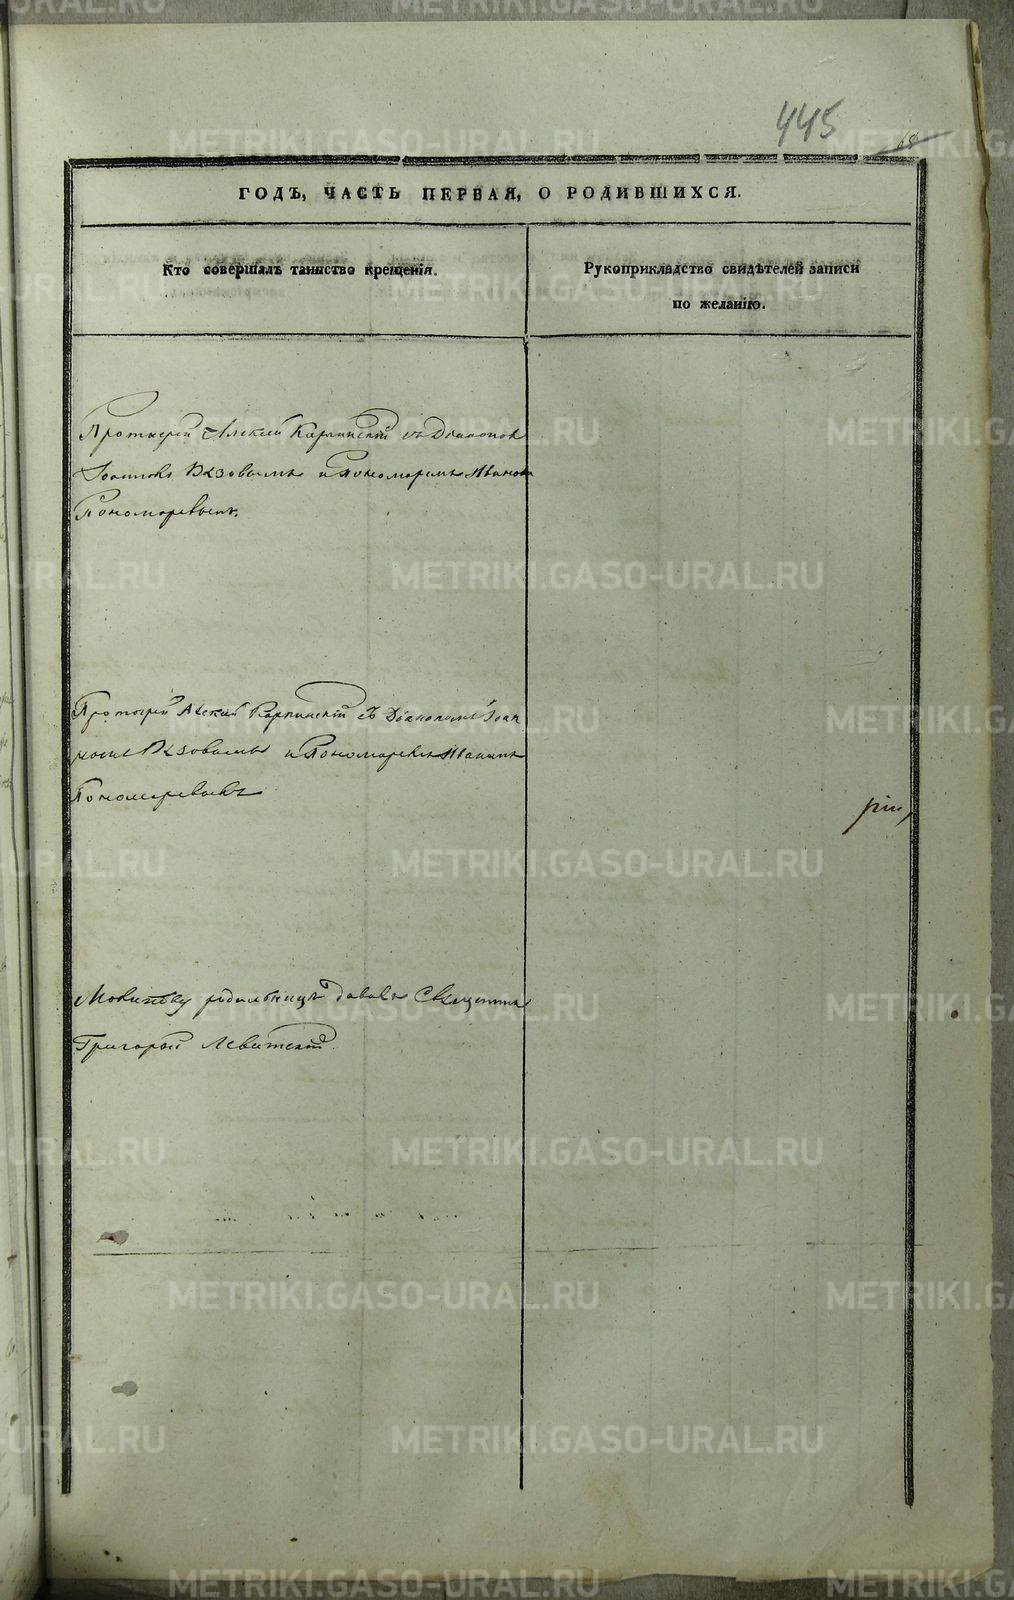 445
68
ГОДЪ, ЧАСТЬ ПЕРВАЯ, О РОДИВШИХСЯ.
Кто совершалъ таинство крещенія.
Рукоприкладство свидѣтелей записи
по желанію.
Протоіерей Алексѣй Карпинскій съ Діакономъ
Іоанномъ Вязовымъ и Пономаремъ Иваномъ
Пономаревымъ.
Протоіерей Алексѣй Карпинскій съ Діакономъ Іоан
номъ Вязовымъ и Пономаремъ Иваномъ
Пономаревымъ
Молитву родильницѣ давалъ Священникъ
Григорій Левитскій.
METRIKI.GASO-URAL.RU